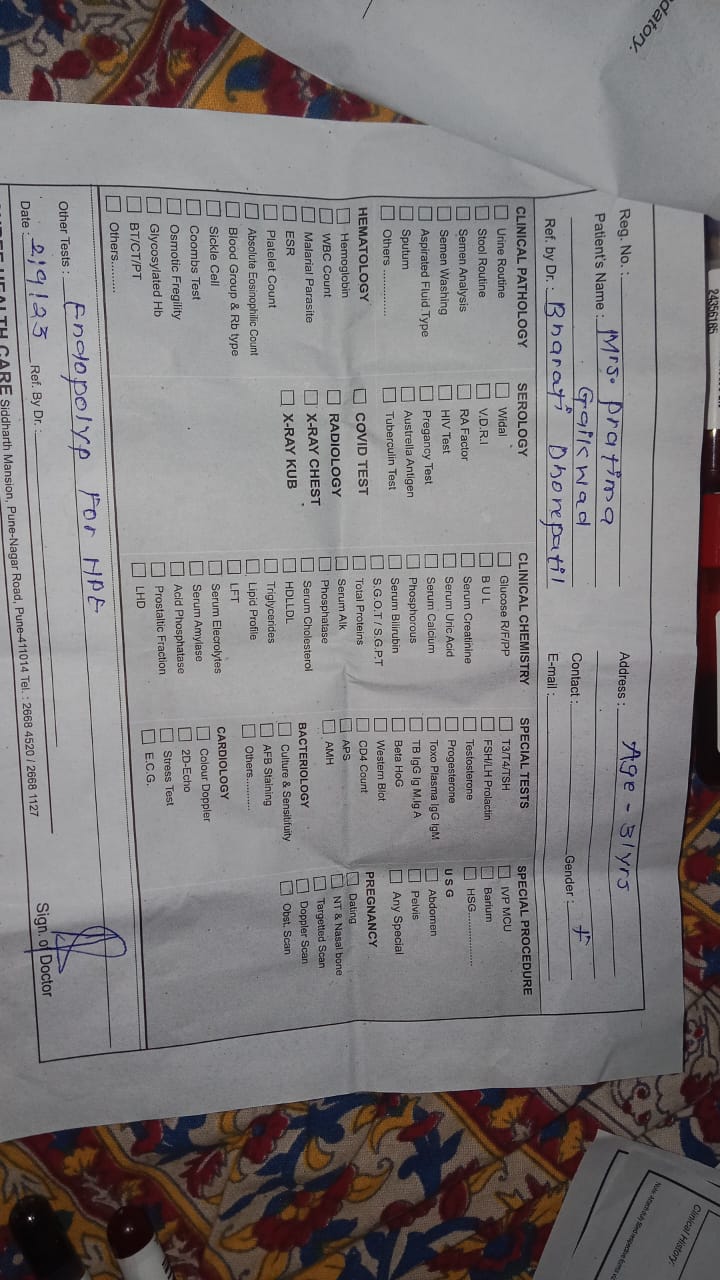 datory.
24356186
Reg. No. :
Patient's Name : Mrs. pratima
Gaikwad
Ref. by Dr. : Bharati Dhorepatil
Address : Age - 31 yrs
Contact :
Gender : f
E-mail :
CLINICAL PATHOLOGY
Urine Routine
Stool Routine
Semen Analysis
Semen Washing
Aspirated Fluid Type
Sputum
Others ..............
HEMATOLOGY
Hemoglobin
WBC Count
Malarial Parasite
ESR
Platelet Count
Absolute Eosinophilic Count
Blood Group & Rb type
Sickle Cell
Coombs Test
Osmotic Fregility
Glycosylated Hb
BT/CT/PT
Others.........
SEROLOGY
Widal
V.D.R.I
RA Factor
HIV Test
Pregancy Test
Austrella Antigen
Tuberculin Test
COVID TEST
RADIOLOGY
X-RAY CHEST
X-RAY KUB
CLINICAL CHEMISTRY
Glucose R/F/PP
B U L
Serum Creatinine
Serum Uric Acid
Serum Calcium
Phosphorous
Serum Bilirubin
S.G.O.T / S.G.P.T
Total Proteins
Serum Alk
Phosphatase
Serum Cholesterol
HDL/LDL
Triglycerides
Lipid Profile
LFT
Serum Elecrolytes
Serum Amylase
Acid Phosphatase
Prostaltic Fraction
LHD
SPECIAL TESTS
T3/T4/TSH
FSH/LH Prolactin
Testosterone
Progesterone
Toxo Plasma IgG IgM
TB IgG Ig M,Ig A
Beta HoG
Western Blot
CD4 Count
APS
AMH
BACTERIOLOGY
Culture & Sensitifuity
AFB Staining
Others..........
CARDIOLOGY
Colour Doppler
2D-Echo
Stress Test
E.C.G.
SPECIAL PROCEDURE
IVP MCU
Barium
HSG..................
U S G
Abdomen
Pelvis
Any Special
PREGNANCY
Dating
NT & Nasal bone
Targetted Scan
Doppler Scan
Obst. Scan
Other Tests : Endopolyp For HPE
Date : 2/9/23 Ref. By Dr. :
Sign. of Doctor
HEALTH CARE Siddharth Mansion, Pune-Nagar Road, Pune-411014 Tel. : 2668 4520 / 2668 1127
Clinical History: